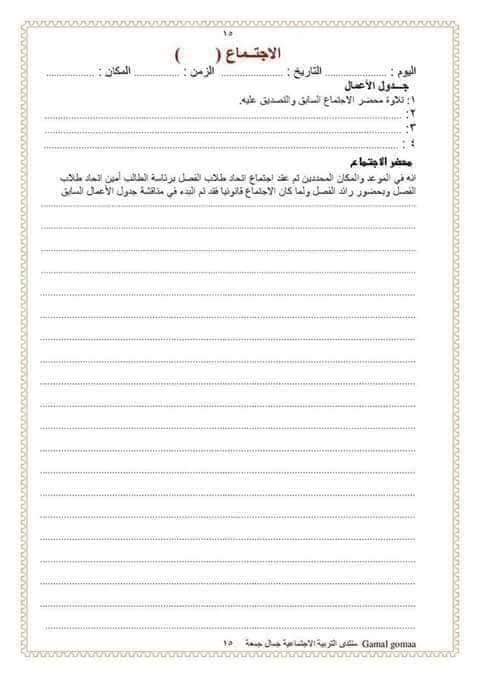 ١٥
الاجتمـاع (        )
اليوم : .................... التاريخ : .................... الزمن : ............... المكان : ................
جـــدول الأعمال
١: تلاوة محضر الاجتماع السابق والتصديق عليه.
٢: ....................
٣: ....................
٤ : ....................
محضر الاجتماع
انه في الموعد والمكان المحددين تم عقد اجتماع اتحاد طلاب الفصل برئاسة الطالب أمين اتحاد طلاب
الفصل وبحضور رائد الفصل ولما كان الاجتماع قانونيا فقد تم البدء في مناقشة جدول الأعمال السابق
Gamal gomaa منتدى التربية الاجتماعية جمال جمعة ١٥